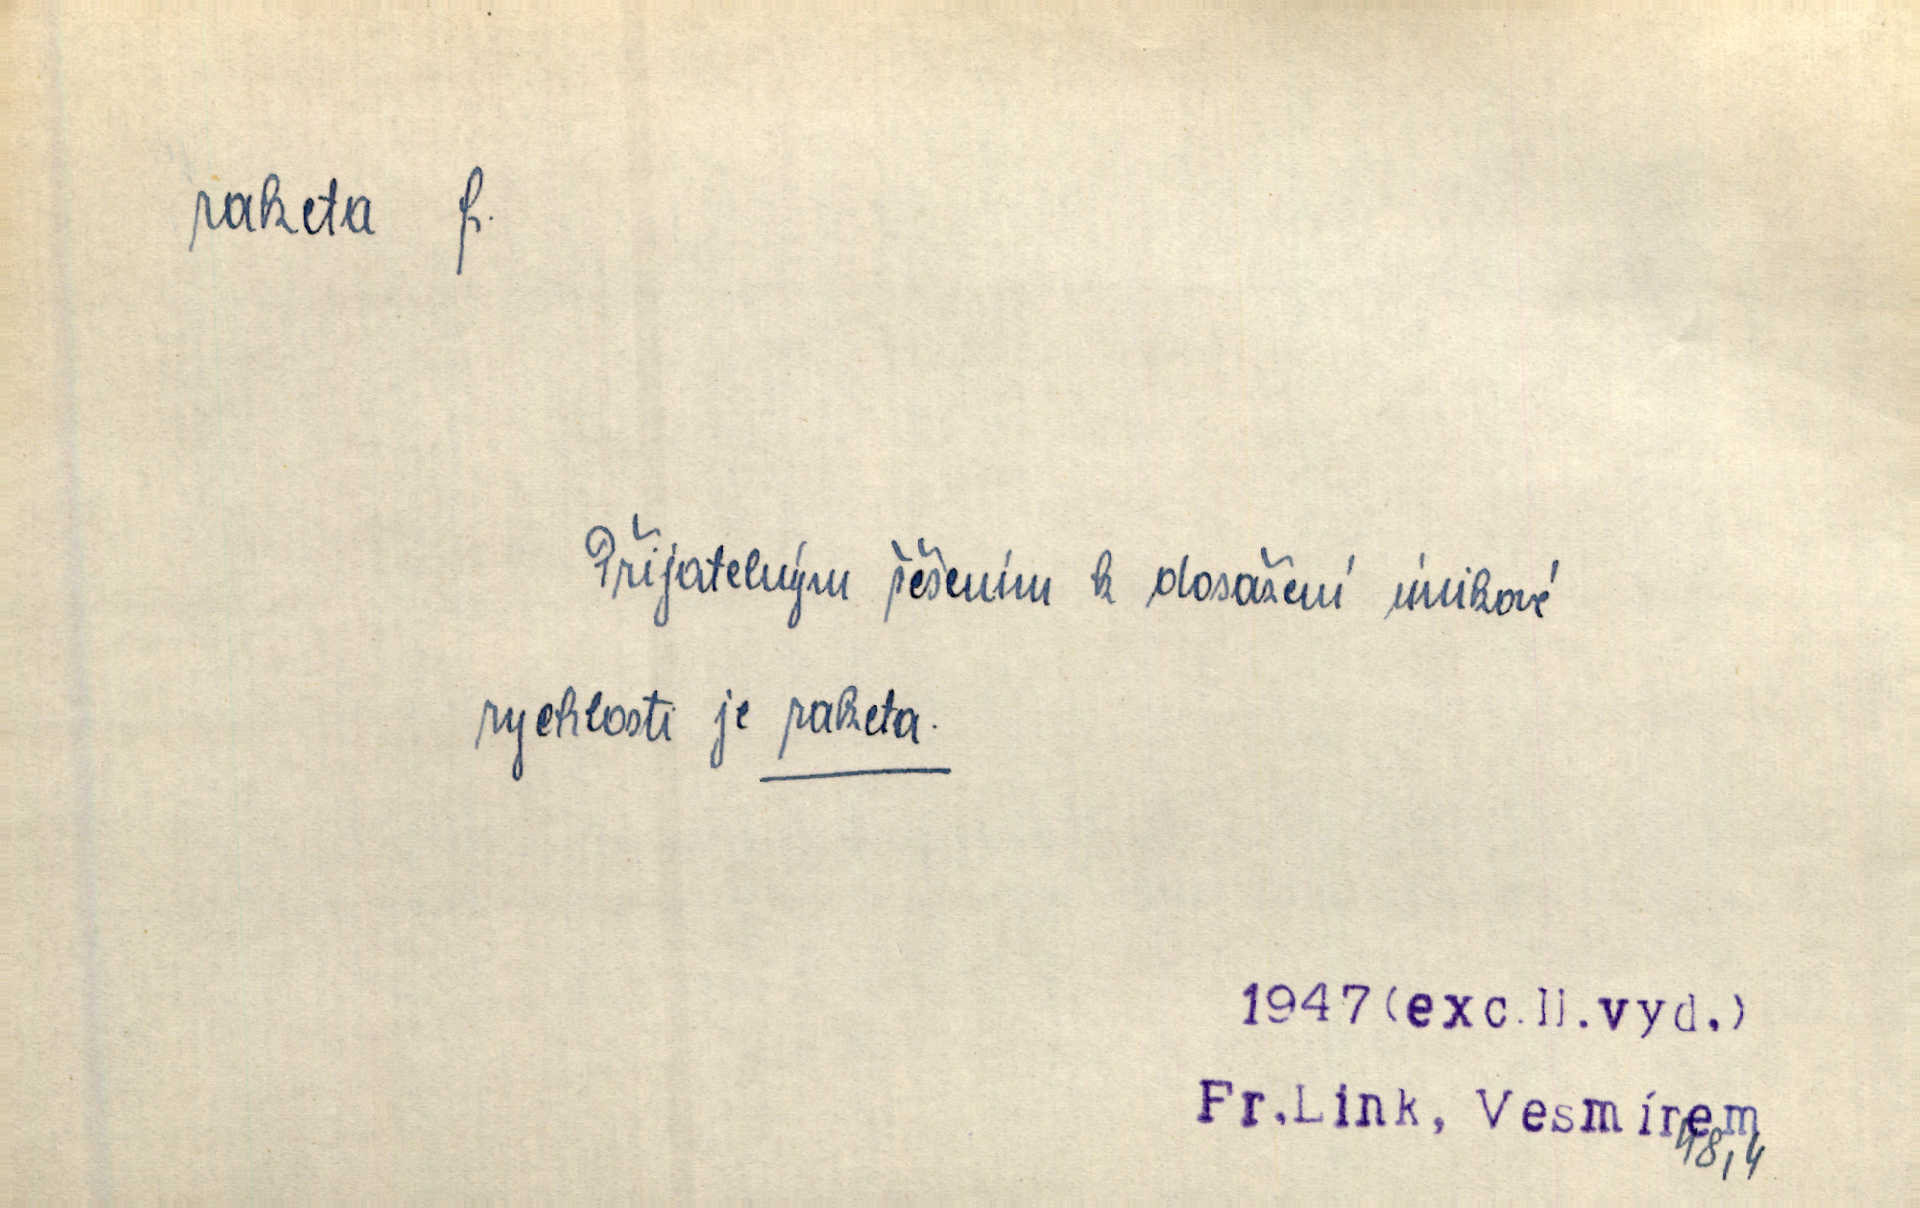 raketa f.
Přijatelným řešením k dosažení únikové
rychlosti je raketa.
1947(exc.II.vyd.)
Fr.Link, Vesmírem
48,4